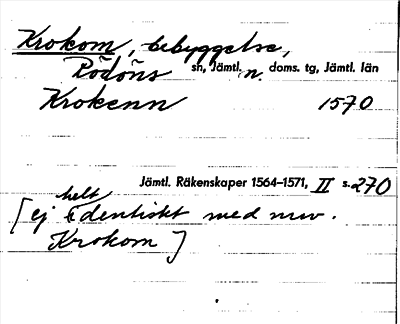 Krokom, bebyggelse,
Rödöns sn, Jämtl. n. doms. tg, Jämtl. län
Krokenn 1570
Jämtl. Räkenskaper 1564–1571, II s. 270
[ej helt identiskt med nuv.
Krokom]